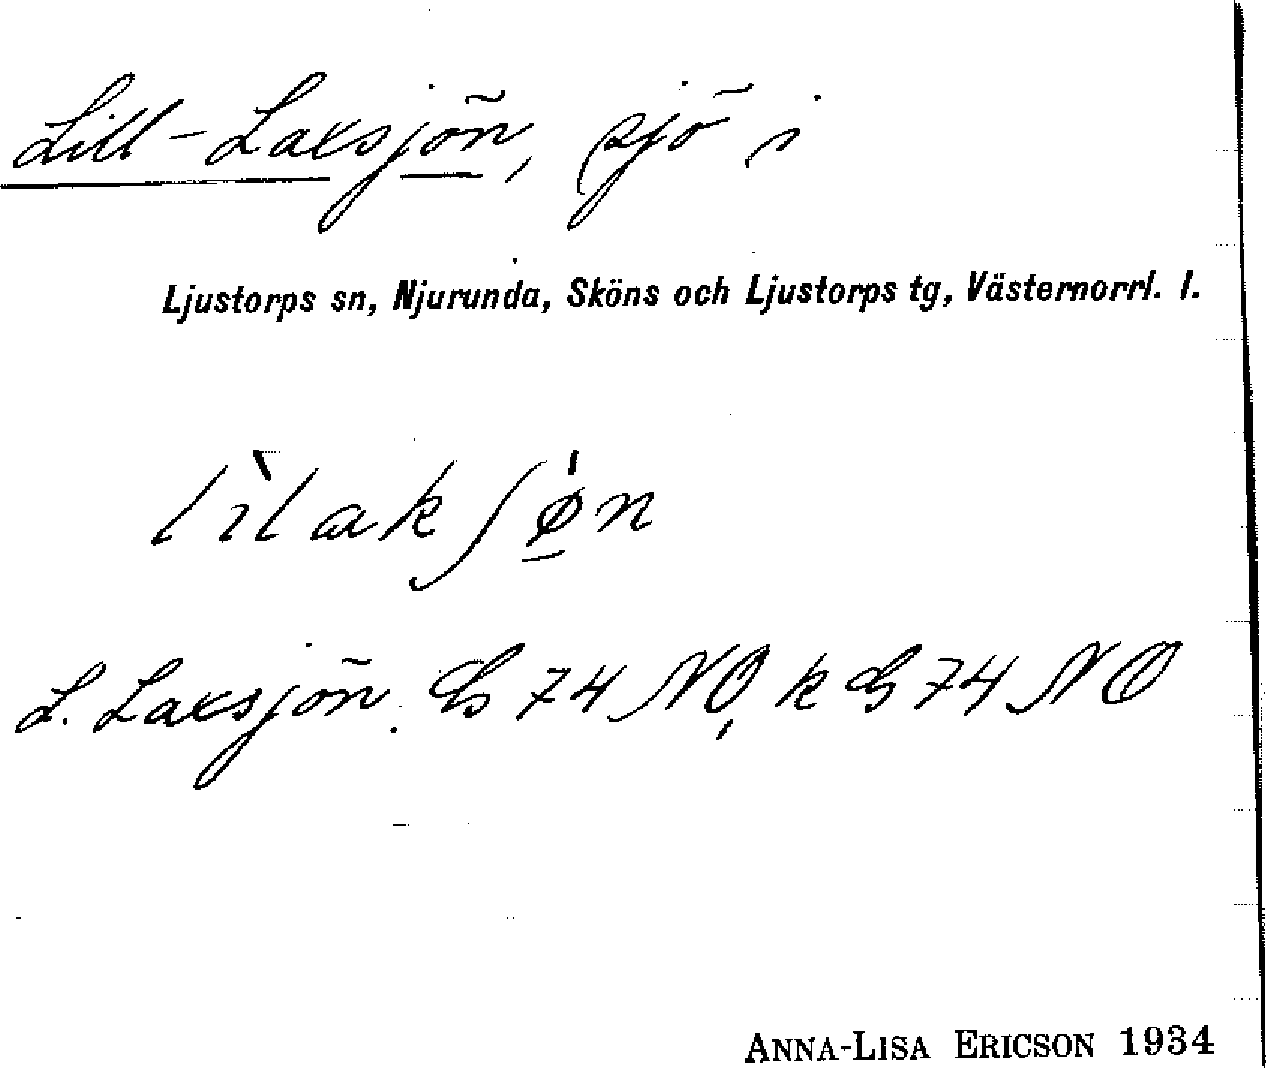 Lill-Laxsjön, sjö i
Ljustorps sn, Njurunda, Sköns och Ljustorps tg, Västernorrl. l.
lìlakʃǿ̱n
L. Laxsjön. Gs 74 NO, k Gs 74 NO
ANNA-LISA ERICSON 1934